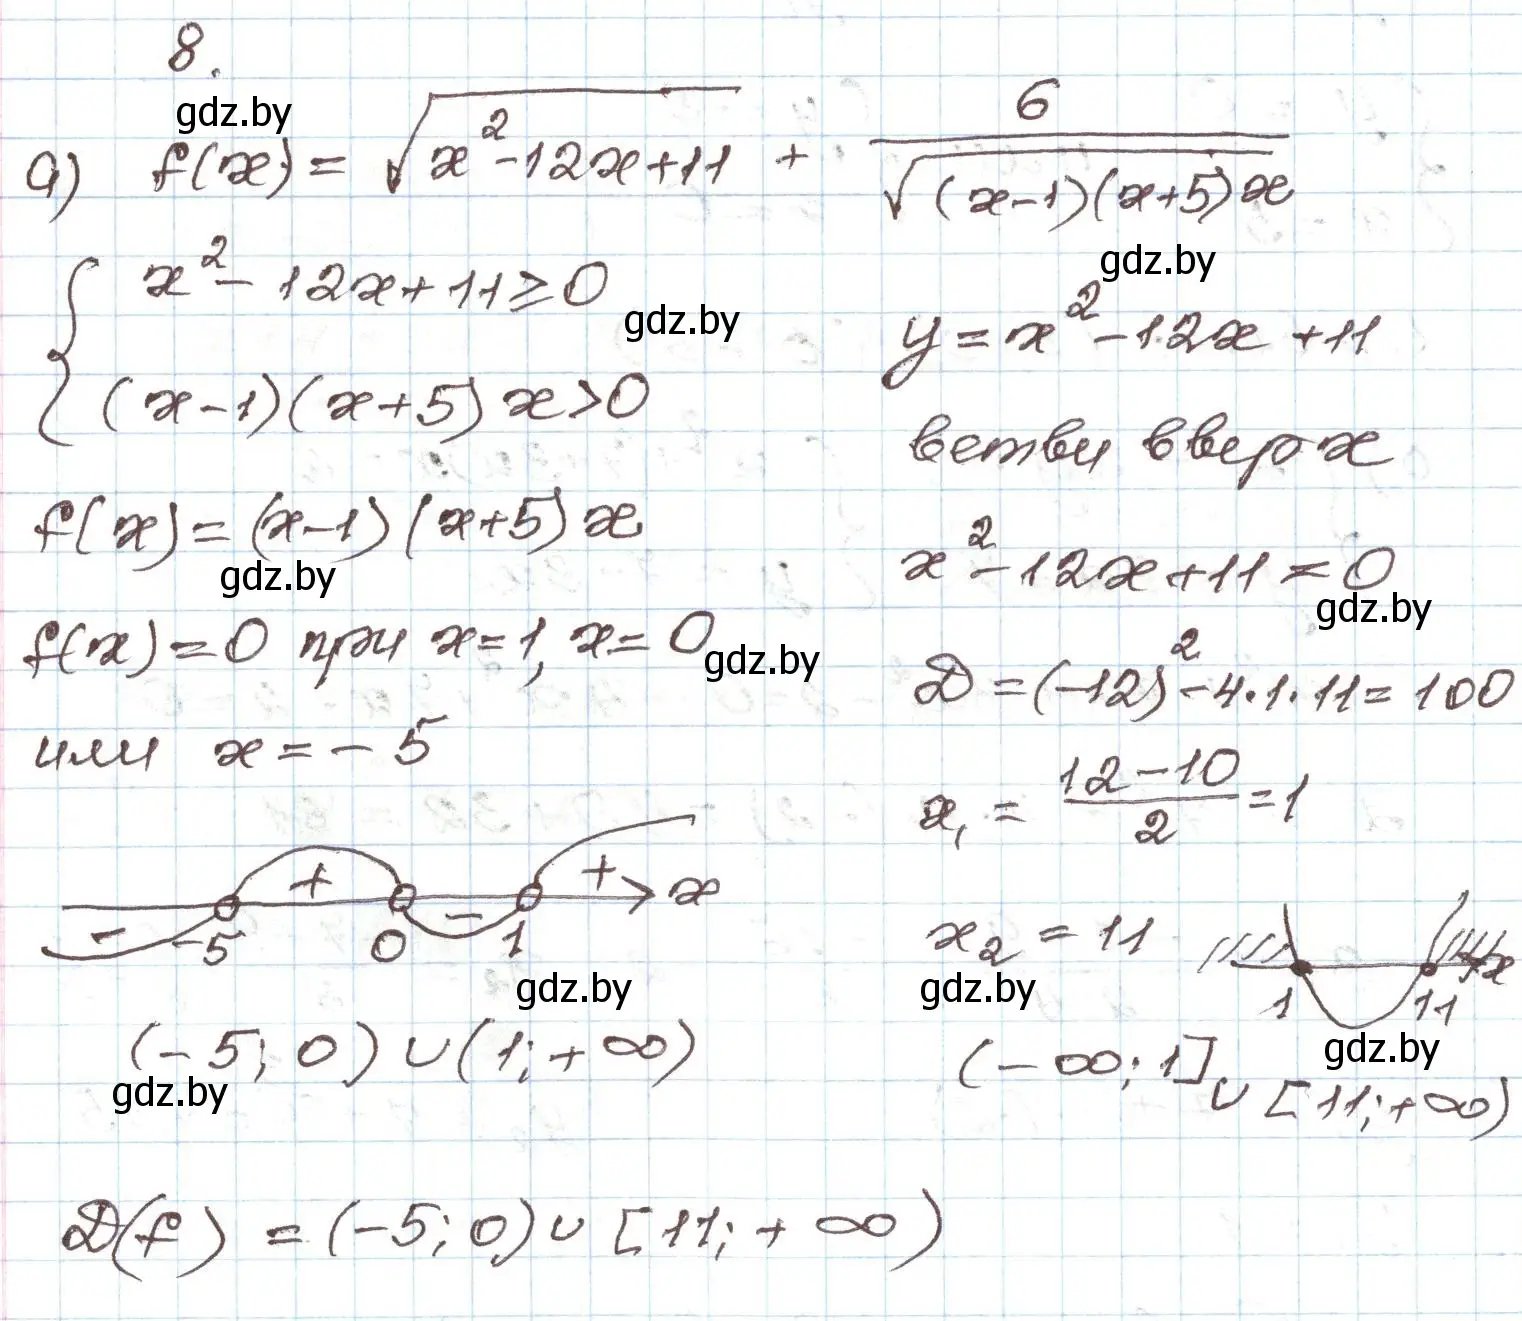 8.
gdz.by
а) f(x) = √(x² - 12x + 11) + 6 / √((x-1)(x+5)x)
gdz.by
{ x² - 12x + 11 ≥ 0
(x-1)(x+5)x > 0
gdz.by
f(x) = (x-1)(x+5)x
gdz.by
f(x) = 0 при x = 1, x = 0
gdz.by
или x = -5
- + - + x
-5 0 1
gdz.by
(-5; 0) ∪ (1; +∞)
gdz.by
y = x² - 12x + 11
ветви вверх
x² - 12x + 11 = 0
gdz.by
D = (-12)² - 4·1·11 = 100
x₁ = (12 - 10)/2 = 1
x₂ = 11
gdz.by
x
1 11
gdz.by
(-∞; 1] ∪ [11; +∞)
D(f) = (-5; 0) ∪ [11; +∞)